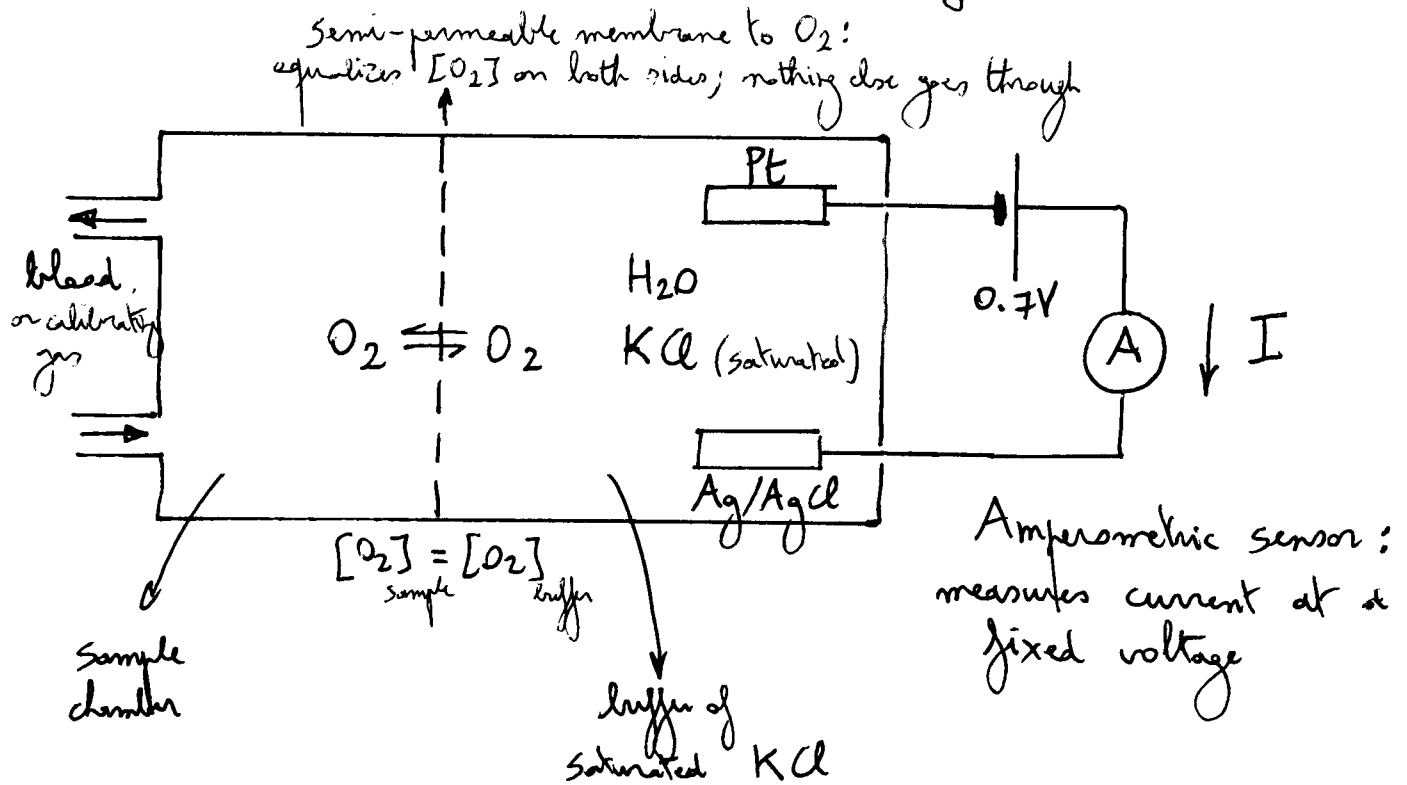 Semi-permeable membrane to O2:
equalizes [O2] on both sides; nothing else goes through
Pt
blood,
or calibrating
gas
H2O
0.7V
O2 ⇌ O2
KCl (saturated)
A
I
Ag/AgCl
[O2]sample = [O2]buffer
Amperometric sensor:
measures current at a
fixed voltage
sample
chamber
buffer of
saturated KCl